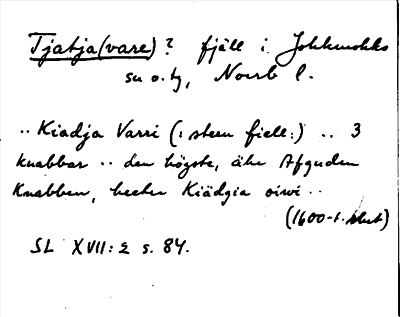 Tjatja(vare)? fjäll i Jokkmokks
sn o. tg, Norrb l.
.. Kiadja Varri (: steen fiell:) .. 3
knabbar .. den högste, ähr Afguden
Knabben, heeter Kiädgia oiwi ..
(1600-t. slut)
SL XVII:2 s. 84.